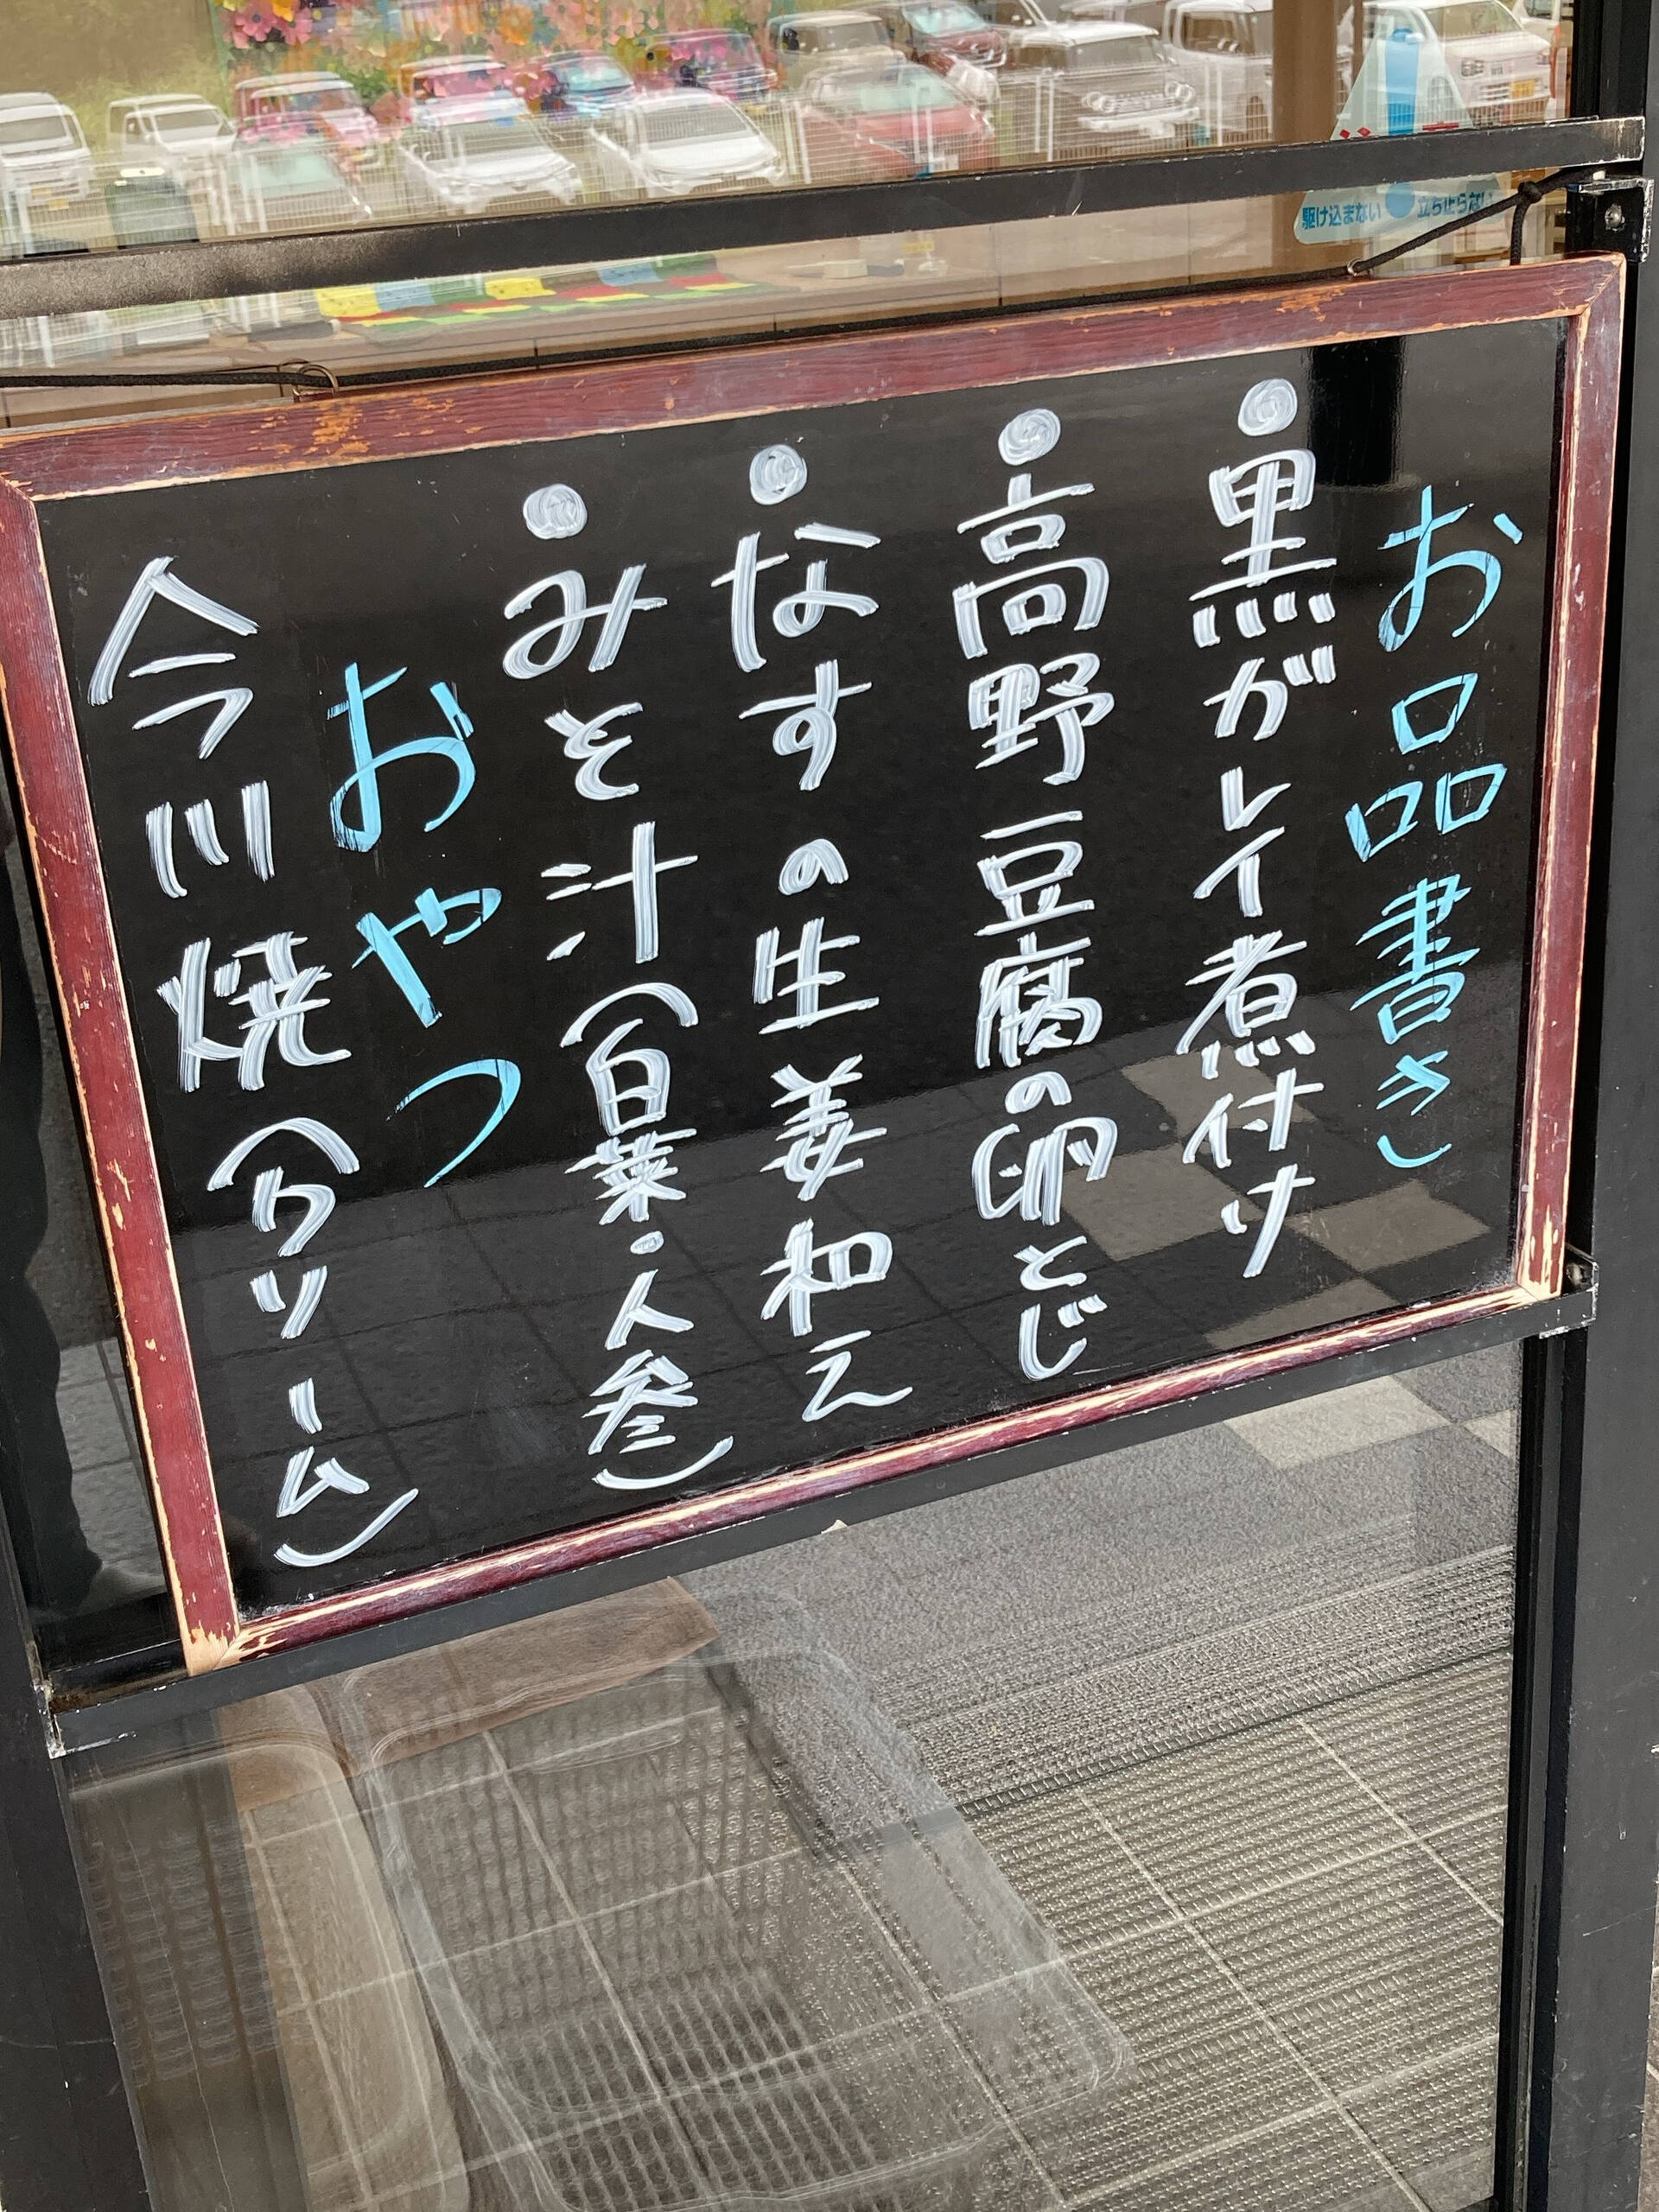 お品書き
●黒ガレイ煮付け
●高野豆腐の卵とじ
●なすの生姜和え
●みそ汁(白菜・人参)
おやつ
今川焼(クリーム)
駆け込まない 立ち止らない